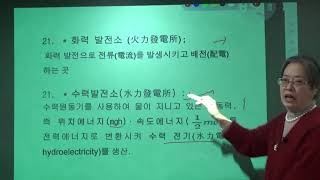 21. * 화력 발전소 (火力發電所) ;
화력 발전으로 전류(電流)를 발생시키고 배전(配電)
하는 곳
21. * 수력발전소(水力發電所) ;
수력원동기를 사용하여 물이 지니고 있는
즉 위치에너지(mgh) · 속도에너지(
전력에너지로 변환시켜 수력 전기(水力電
hydroelectricity)를 생산.